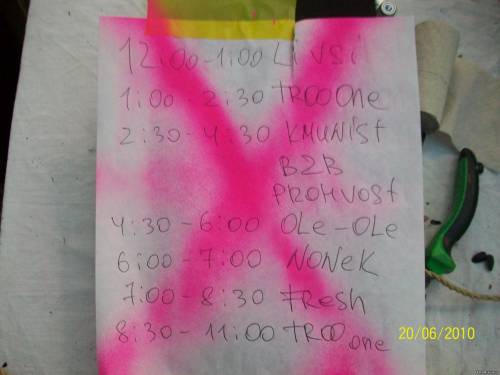 12:00-1:00 Livsi
1:00-2:30 TROO One
2:30-4:30 KMUNiSt
B2B
PROHVOSt
4:30-6:00 OLe-OLe
6:00-7:00 NONeK
7:00-8:30 FResh
8:30-11:00 tROO one
20/06/2010